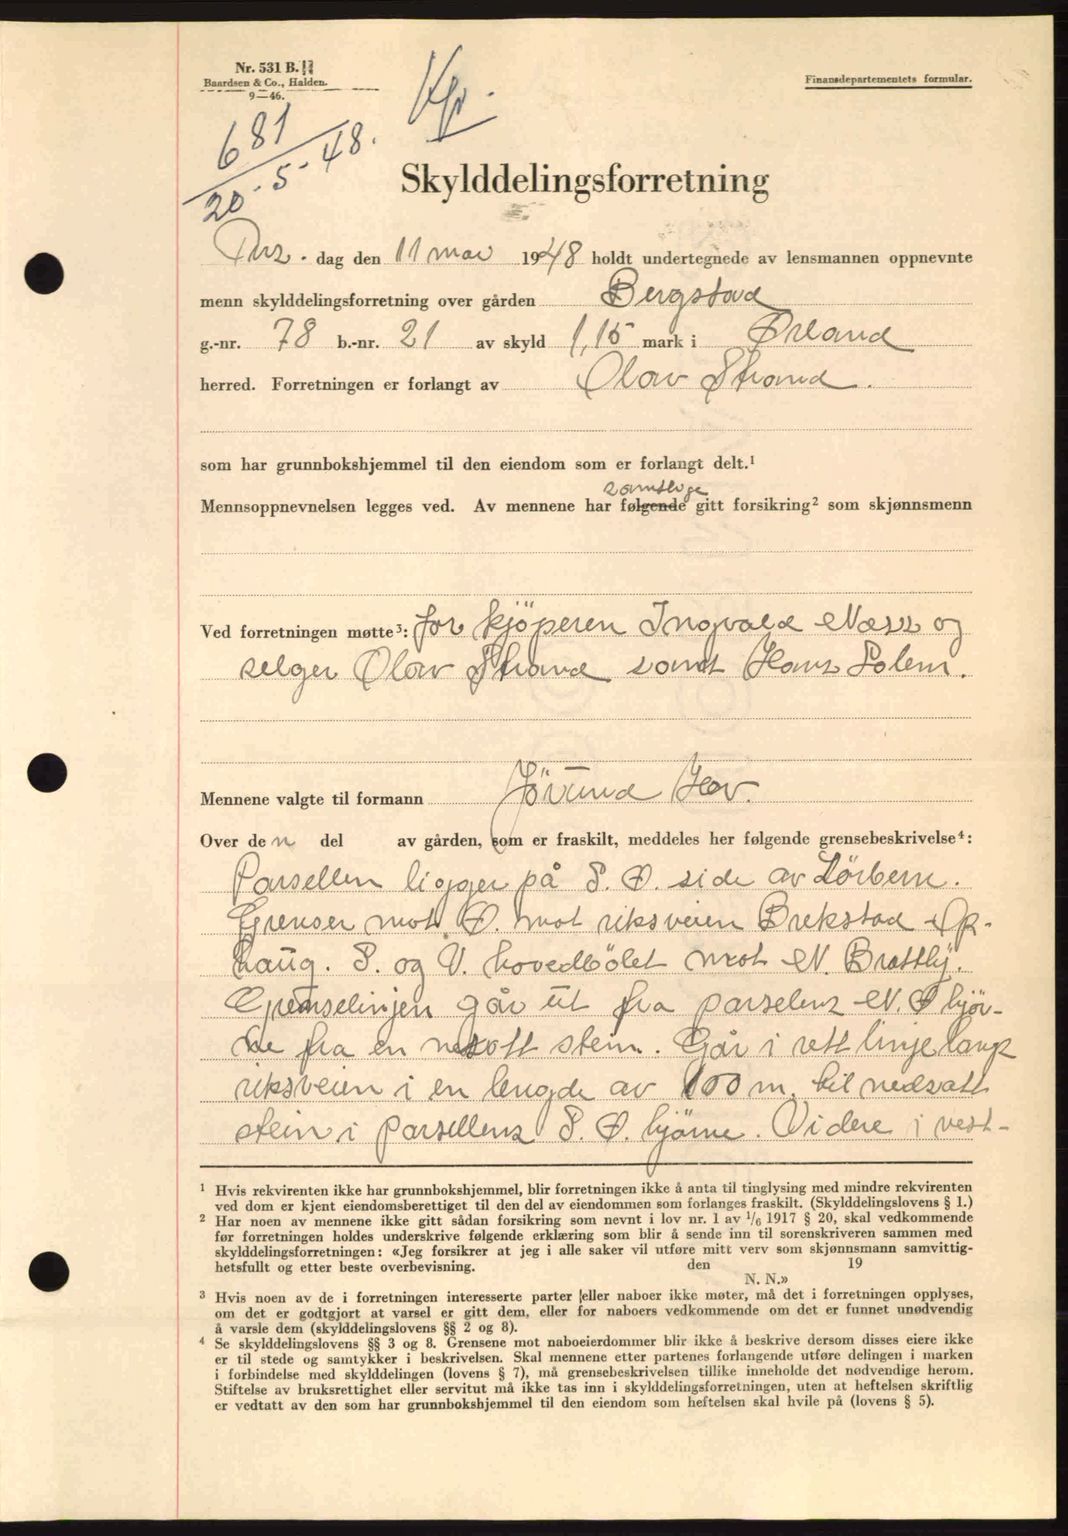 Nr. 531 B.
Baardsen & Co., Halden.
9—46.
Finansdepartementets formular.
681
20-5-48.
Skylddelingsforretning
Tirs. dag den 11 mai 1948 holdt undertegnede av lensmannen oppnevnte
menn skylddelingsforretning over gården Bergstad
g.-nr. 78 b.-nr. 21 av skyld 1,15 mark i Ørland
herred. Forretningen er forlangt av Olav Strand.
som har grunnbokshjemmel til den eiendom som er forlangt delt.¹
samtlige
Mennsoppnevnelsen legges ved. Av mennene har følgende gitt forsikring² som skjønnsmenn
Ved forretningen møtte³: for kjöperen Ingvald Næss og
selger Olav Strand samt Hans Solem.
Mennene valgte til formann Jörund Hov.
Over den del av gården, som er fraskilt, meddeles her følgende grensebeskrivelse⁴:
Parsellen ligger på S. Ø. side av
Grenser mot Ø. mot riksveien Brekstad - Op-
haug. S. og V. hovedbölet mot N. Brattby.
Grenselinjen går ut fra parselens N. Ø hjör-
ne fra en nedsatt stein. Går i rett linje langs
riksveien i en lengde av 100 m. til nedsatt
stein i parsellens S. Ø. hjörne. Videre i vest-
¹ Hvis rekvirenten ikke har grunnbokshjemmel, blir forretningen ikke å anta til tinglysing med mindre rekvirenten
ved dom er kjent eiendomsberettiget til den del av eiendommen som forlanges fraskilt. (Skylddelingslovens § 1.)
² Har noen av mennene ikke gitt sådan forsikring som nevnt i lov nr. 1 av 1/6 1917 § 20, skal vedkommende
før forretningen holdes underskrive følgende erklæring som blir å sende inn til sorenskriveren sammen med
skylddelingsforretningen: «Jeg forsikrer at jeg i alle saker vil utføre mitt verv som skjønnsmann samvittig-
hetsfullt og etter beste overbevisning. den 19
N. N.»
³ Hvis noen av de i forretningen interesserte parter (eller naboer ikke møter, må det i forretningen opplyses,
om det er godtgjort at varsel er gitt dem, eller for naboers vedkommende om det er funnet unødvendig
å varsle dem (skylddelingslovens §§ 2 og 8).
⁴ Se skylddelingslovens §§ 3 og 8. Grensene mot naboeierdommer blir ikke å beskrive dersom disses eiere ikke
er til stede og samtykker i beskrivelsen. Skal mennene etter partenes forlangende utføre delingen i marken
i forbindelse med skylddelingen (lovens § 7), må grensebeskrivelsen tillike inneholde det nødvendige herom.
Stiftelse av bruksrettighet eller servitut må ikke tas inn i skylddelingsforretningen, uten at heftelsen skriftlig
er vedtatt av den som har grunnbokshjemmel til den eiendom som heftelsen skal hvile på (lovens § 5).